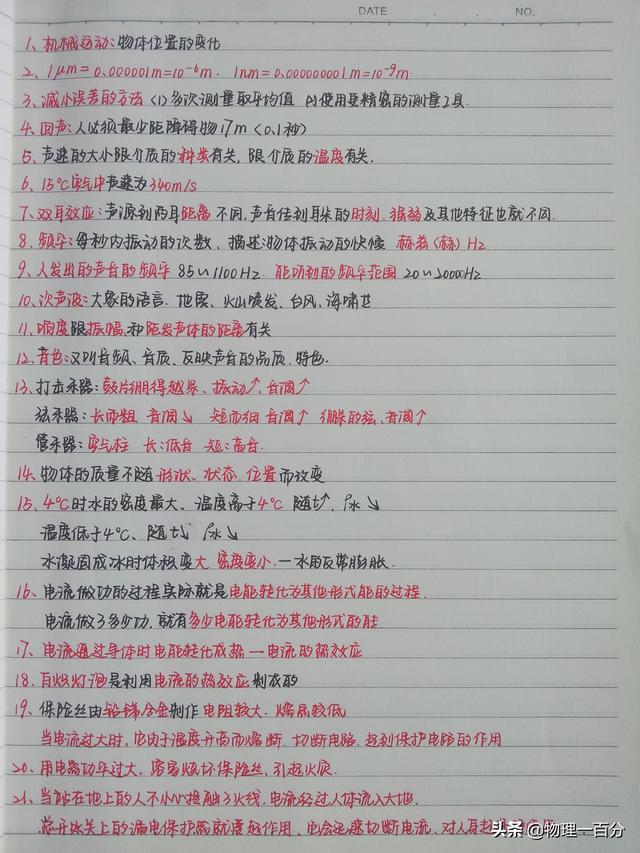 DATE . . NO.
1、机械运动：物体位置的变化
2、1μm=0.000001m=10⁻⁶m. 1nm=0.000000001m=10⁻⁹m
3、减小误差的方法 (1)多次测量取平均值 (2)使用更精密的测量工具.
4、回声：人必须最少距障碍物17m（0.1秒）
5、声速的大小跟介质的种类有关，跟介质的温度有关.
6、15℃空气中声速为340m/s
7、双耳效应：声源到两耳距离不同，声音传到耳朵的时刻、强弱及其他特征也就不同.
8、频率：每秒内振动的次数、描述物体振动的快慢 赫兹(赫) Hz
9、人发出的声音的频率 85~1100Hz 能听到的频率范围 20~20000Hz
10、次声波：大象的语言、地震、火山喷发、台风、海啸
11、响度跟振幅、和距发声体的距离有关
12、音色：又叫音频、音质、反映声音的品质、特色.
13、打击乐器：鼓片绷得越紧、振动↑，音调↑
弦乐器：长而粗 音调↓ 短而细 音调↑ 绷紧的弦、音调↑
管乐器：空气柱 长：低音 短：高音.
14、物体的质量不随形状、状态、位置而改变
15、4℃时水的密度最大、温度高于4℃ 随t↑、ρ水↓
温度低于4℃、随t↓ ρ水↓
水凝固成冰时体积变大 密度变小.—水的反常膨胀.
16、电流做功的过程实际就是电能转化为其他形式能的过程.
电流做了多少功、就有多少电能转化为其他形式的能
17、电流通过导体时电能转化成热—电流的热效应
18、白炽灯泡是利用电流的热效应制成的
19、保险丝由铅锑合金制作 电阻较大、熔点较低
当电流过大时，它由于温度升高而熔断、切断电路、起到保护电路的作用
20、用电器功率过大，容易烧坏保险丝、引起火灾.
21、当站在地上的人不小心接触了火线，电流经过人体流入大地.
总开关上的漏电保护器就要起作用、它会迅速切断电流、对人起
头条 @物理一百分